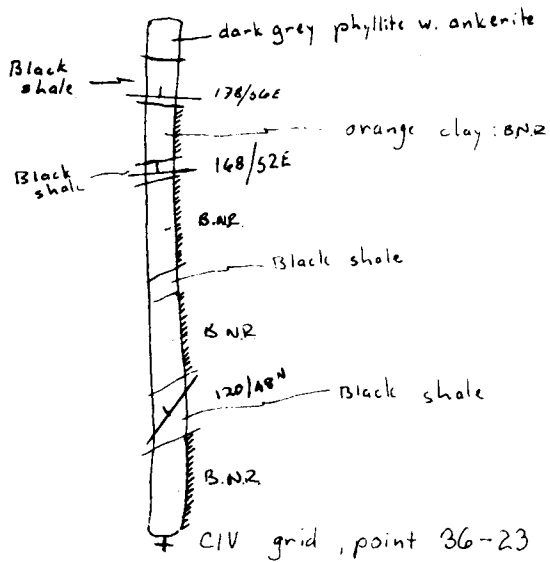 dark grey phyllite w. ankerite
Black
shale
178/56E
orange clay : B.N.R
168/52E
Black
shale
B.N.R
Black shale
B N R
120/48 N
Black shale
B.N.R
CIV grid, point 36-23